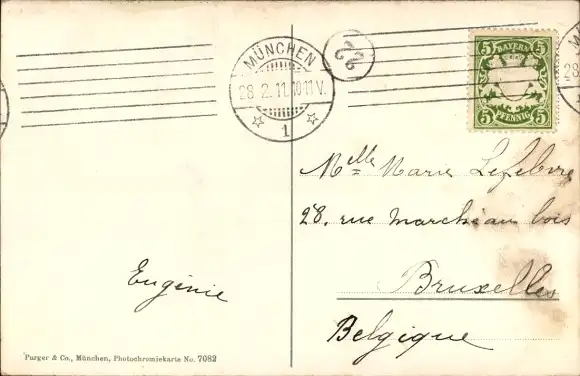 MÜNCHEN
28.2.11.10-11V.
1
22
5 BAYERN 5
5 PFENNIG 5
Melle Marie Lefebvre
28. rue marché au bois
Bruxelles
Belgique
Eugénie
Purger & Co., München, Photochromiekarte No. 7082